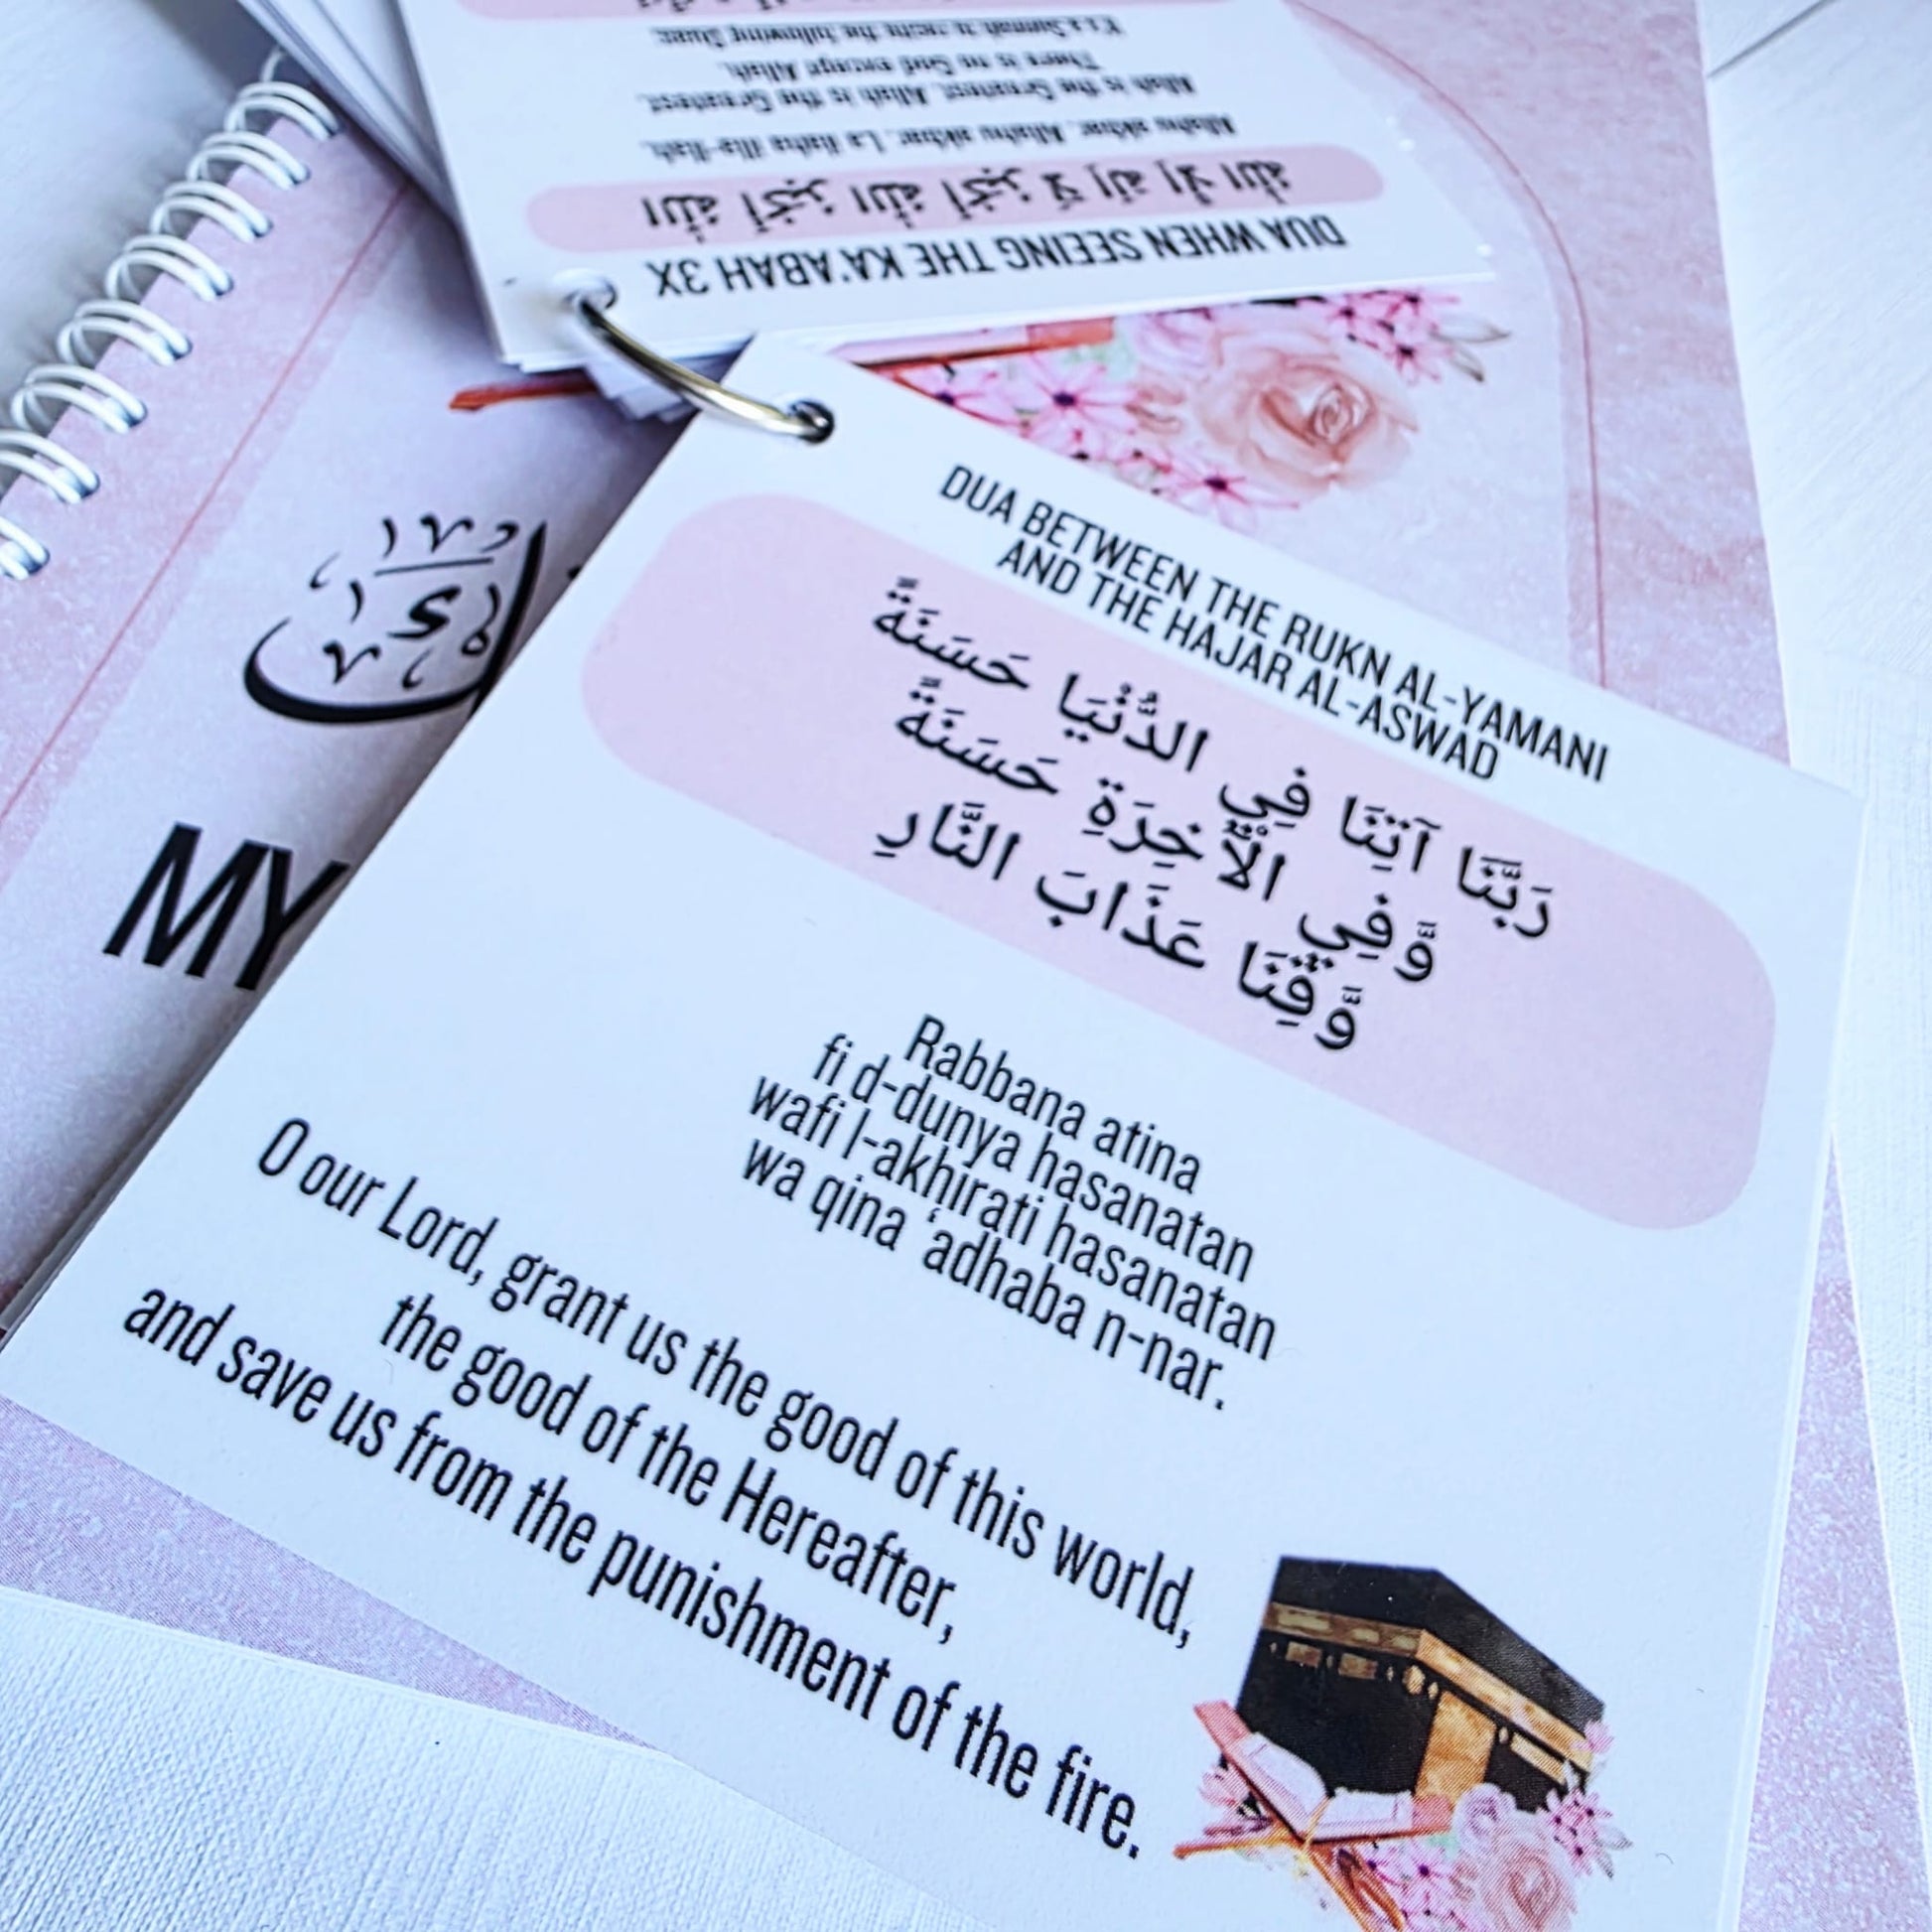 It's a Sunnah to recite the following Duas:
There is no God except Allah.
Allah is the Greatest, Allah is the Greatest,
Allahu akbar, Allahu akbar, La ilaha illa-llah.
اللّٰهُ أَكْبَرُ اللّٰهُ أَكْبَرُ لَا إِلٰهَ إِلَّا اللّٰهُ
DUA WHEN SEEING THE KA'ABAH 3X
MY
DUA BETWEEN THE RUKN AL-YAMANI
AND THE HAJAR AL-ASWAD
رَبَّنَا آتِنَا فِي الدُّنْيَا حَسَنَةً
وَّفِي الْآخِرَةِ حَسَنَةً
وَّقِنَا عَذَابَ النَّارِ
Rabbana atina
fi d-dunya hasanatan
wafi l-akhirati hasanatan
wa qina ‘adhaba n-nar.
O our Lord, grant us the good of this world,
the good of the Hereafter,
and save us from the punishment of the fire.